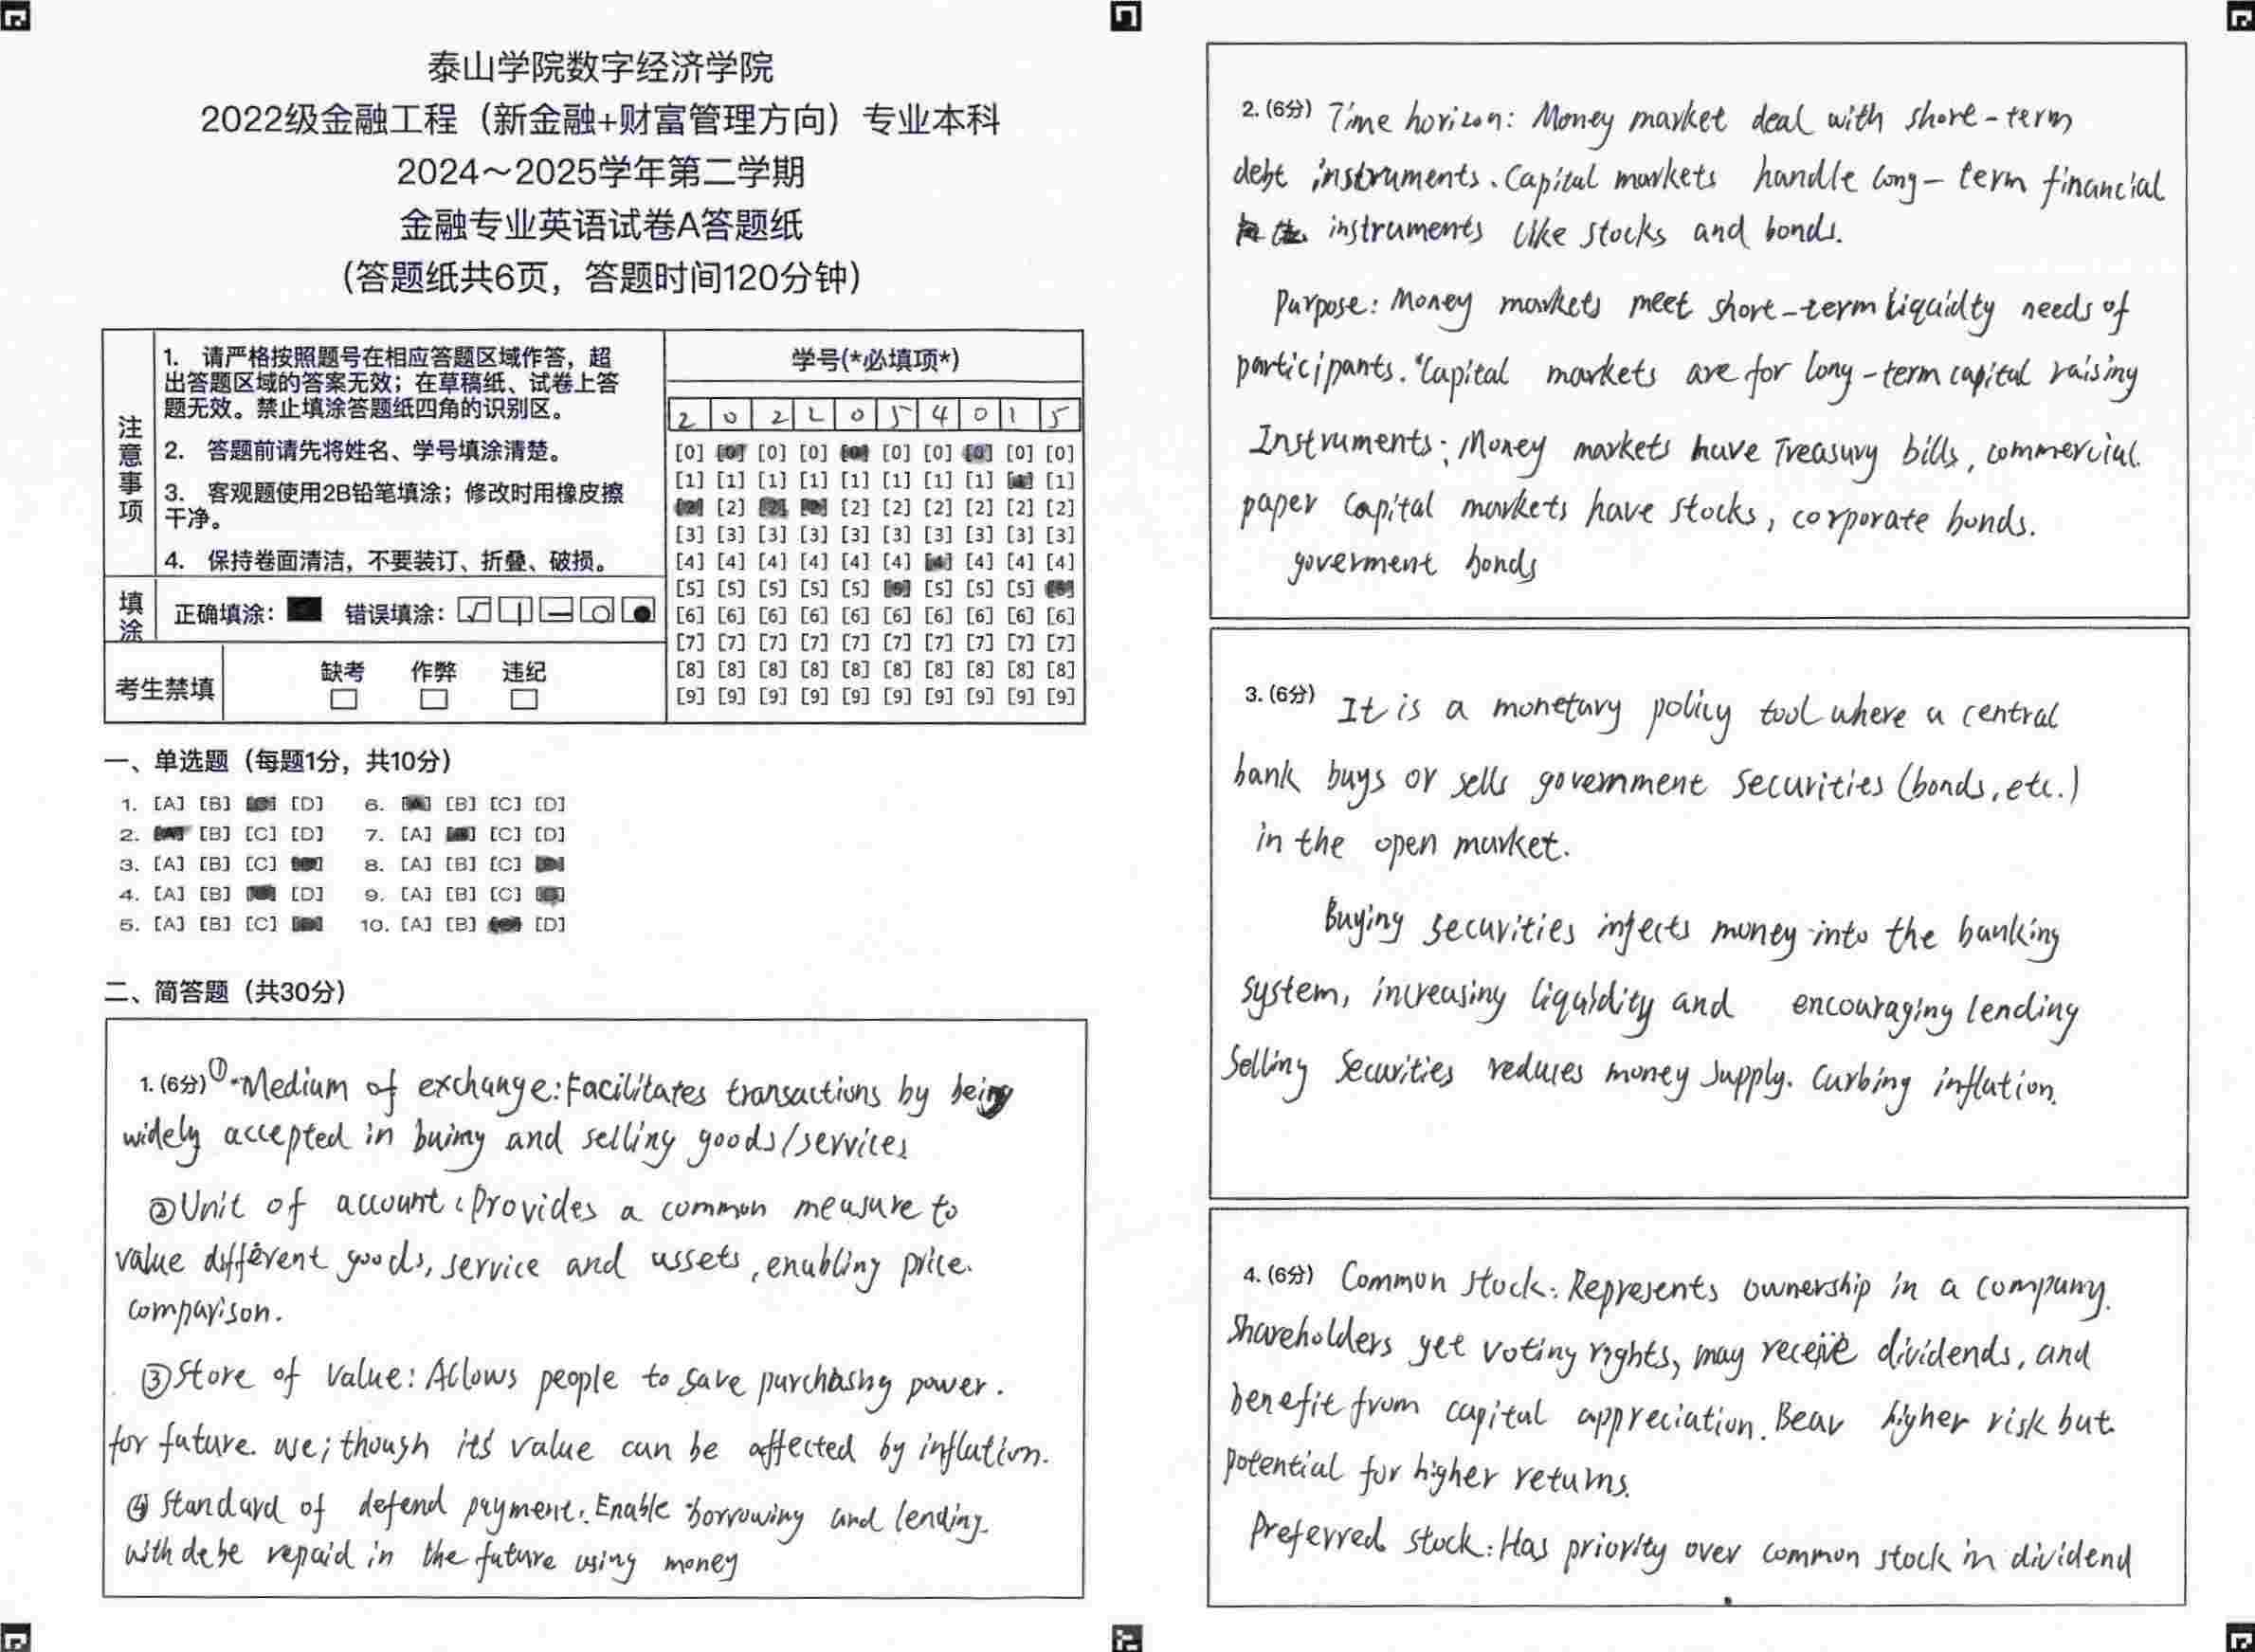 泰山学院数字经济学院
2022级金融工程（新金融+财富管理方向）专业本科
2024～2025学年第二学期
金融专业英语试卷A答题纸
（答题纸共6页，答题时间120分钟）
注意事项
1. 请严格按照题号在相应答题区域作答，超
出答题区域的答案无效；在草稿纸、试卷上答
题无效。禁止填涂答题纸四角的识别区。
2. 答题前请先将姓名、学号填涂清楚。
3. 客观题使用2B铅笔填涂；修改时用橡皮擦
干净。
4. 保持卷面清洁，不要装订、折叠、破损。
填涂
正确填涂： 错误填涂：
考生禁填
缺考 作弊 违纪
学号(*必填项*)
2 0 2 2 0 5 4 0 1 5
[0] [0] [0] [0] [0] [0] [0] [0] [0] [0]
[1] [1] [1] [1] [1] [1] [1] [1] [1] [1]
[2] [2] [2] [2] [2] [2] [2] [2] [2] [2]
[3] [3] [3] [3] [3] [3] [3] [3] [3] [3]
[4] [4] [4] [4] [4] [4] [4] [4] [4] [4]
[5] [5] [5] [5] [5] [5] [5] [5] [5] [5]
[6] [6] [6] [6] [6] [6] [6] [6] [6] [6]
[7] [7] [7] [7] [7] [7] [7] [7] [7] [7]
[8] [8] [8] [8] [8] [8] [8] [8] [8] [8]
[9] [9] [9] [9] [9] [9] [9] [9] [9] [9]
一、单选题（每题1分，共10分）
1. [A] [B] [C] [D] 6. [A] [B] [C] [D]
2. [A] [B] [C] [D] 7. [A] [B] [C] [D]
3. [A] [B] [C] [D] 8. [A] [B] [C] [D]
4. [A] [B] [C] [D] 9. [A] [B] [C] [D]
5. [A] [B] [C] [D] 10. [A] [B] [C] [D]
二、简答题（共30分）
1. (6分) ① Medium of exchange: Facilitates transactions by being
widely accepted in buimy and selling goods/services
② Unit of account: Provides a common measure to
value different goods, service and assets, enabling price.
comparison.
③ Store of Value: Allows people to save purchasing power.
for future. use; though it's value can be affected by inflation.
④ Standard of defend payment: Enable borrowing and lending.
with debe repaid in the future using money
2. (6分) Time horizon: Money market deal with short-term
debt instruments. Capital markets handle long-term financial
instruments like stocks and bonds.
Purpose: Money markets meet short-term liquidty needs of
participants. Capital markets are for long-term capital raising
Instruments: Money markets have Treasury bills, commercial.
paper Capital markets have stocks, corporate bonds.
goverment bonds
3. (6分) It is a monetary policy tool where a central
bank buys or sells government securities (bonds, etc.)
in the open market.
Buying securities injects money into the banking
system, increasing liquidity and encouraging lending
Selling Securities reduces money supply. Curbing inflation.
4. (6分) Common stock: Represents ownership in a company.
Shareholders get voting rights, may receive dividends, and
benefit from capital appreciation. Bear higher risk but.
potential for higher returns.
Preferred stock: Has priority over common stock in dividend